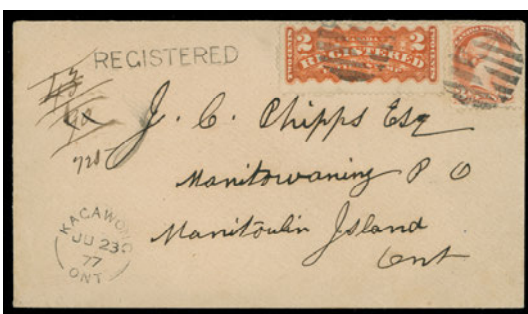 REGISTERED
2 REGISTERED 2
J. C. Phipps Esq
Manitowaning P O
Manitoulin Island
Ont
725
KAGAWONG
JU 23
77
ONT